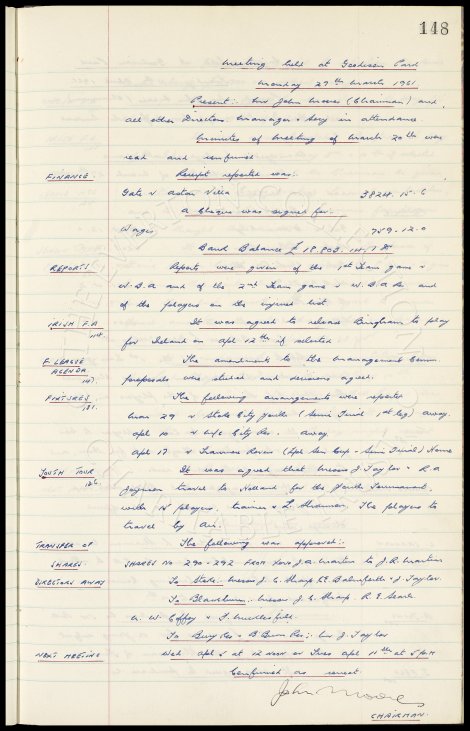 148
Meeting held at Goodison Park
Monday 27th March 1961
Present: Mr John Moores (Chairman) and
all other Directors. Manager & Secy in attendance
Minutes of Meeting of March 20th were
read and confirmed
FINANCE. Receipt reported was:
Gate v Aston Villa 3824.15.6
A Cheque was signed for:
Wages 759.12.0
Bank Balance £18,803.14.7
REPORTS Reports were given of the 1st Team game v
W.B.A and of the 2nd Team game v W.B.A Res and
of the players on the injured list
IRISH F.A It was agreed to release Bingham to play
for Ireland on Apl 12th if selected
F. LEAGUE The amendments to the Management Comm.
AGENDA 147. proposals were studied and decisions agreed.
FIXTURES The following arrangements were reported
131. Mar 29 v Stoke City Youths (Semi Final 1st leg) away.
Apl 10 v City Res. away
Apl 17 v Tranmere Rovers (Lpl Sen Cup - Semi Final) Home
YOUTH TOUR It was agreed that Messrs J Taylor & R A
travel to Holland for the Youth Tournament,
with players, trainer & L. The players to
travel by Air.
TRANSFER OF The following was approved:
SHARES. SHARES No 290-292 FROM J.A. Martin to J.R. Martin
DIRECTORS AWAY To Stoke: Messrs J. C. Sharp & J. Taylor.
To Blackburn: Messrs J. C. Sharp. R. E. Searle.
To Bury Res v B Burn Res: Mr J Taylor
NEXT MEETING Wed Apl 5 at 12 NOON or Tues Apl 11th at 5 p.m
Confirmed as correct
John Moores
CHAIRMAN.